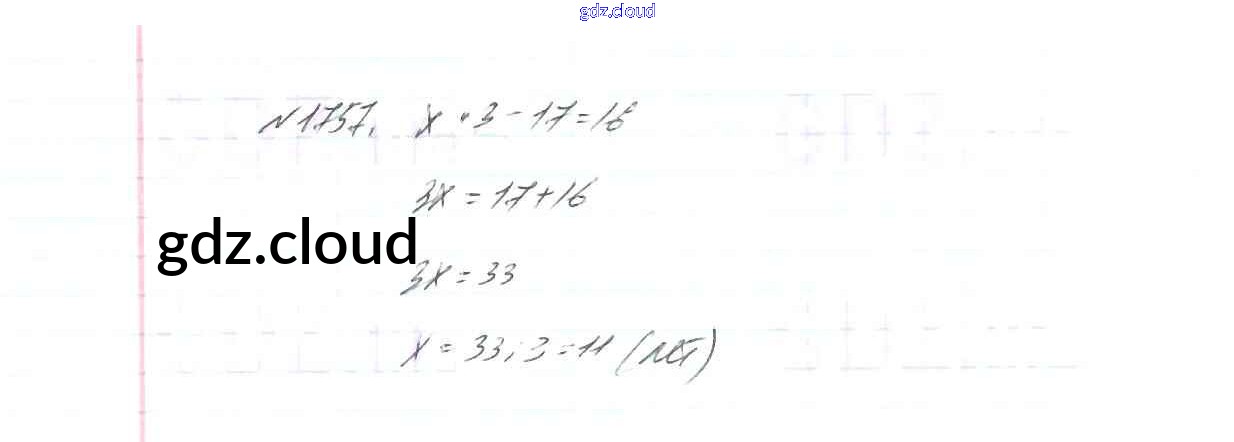 gdz.cloud
№1757. x · 3 - 17 = 16
3x = 17 + 16
gdz.cloud
3x = 33
x = 33 : 3 = 11 (лет)